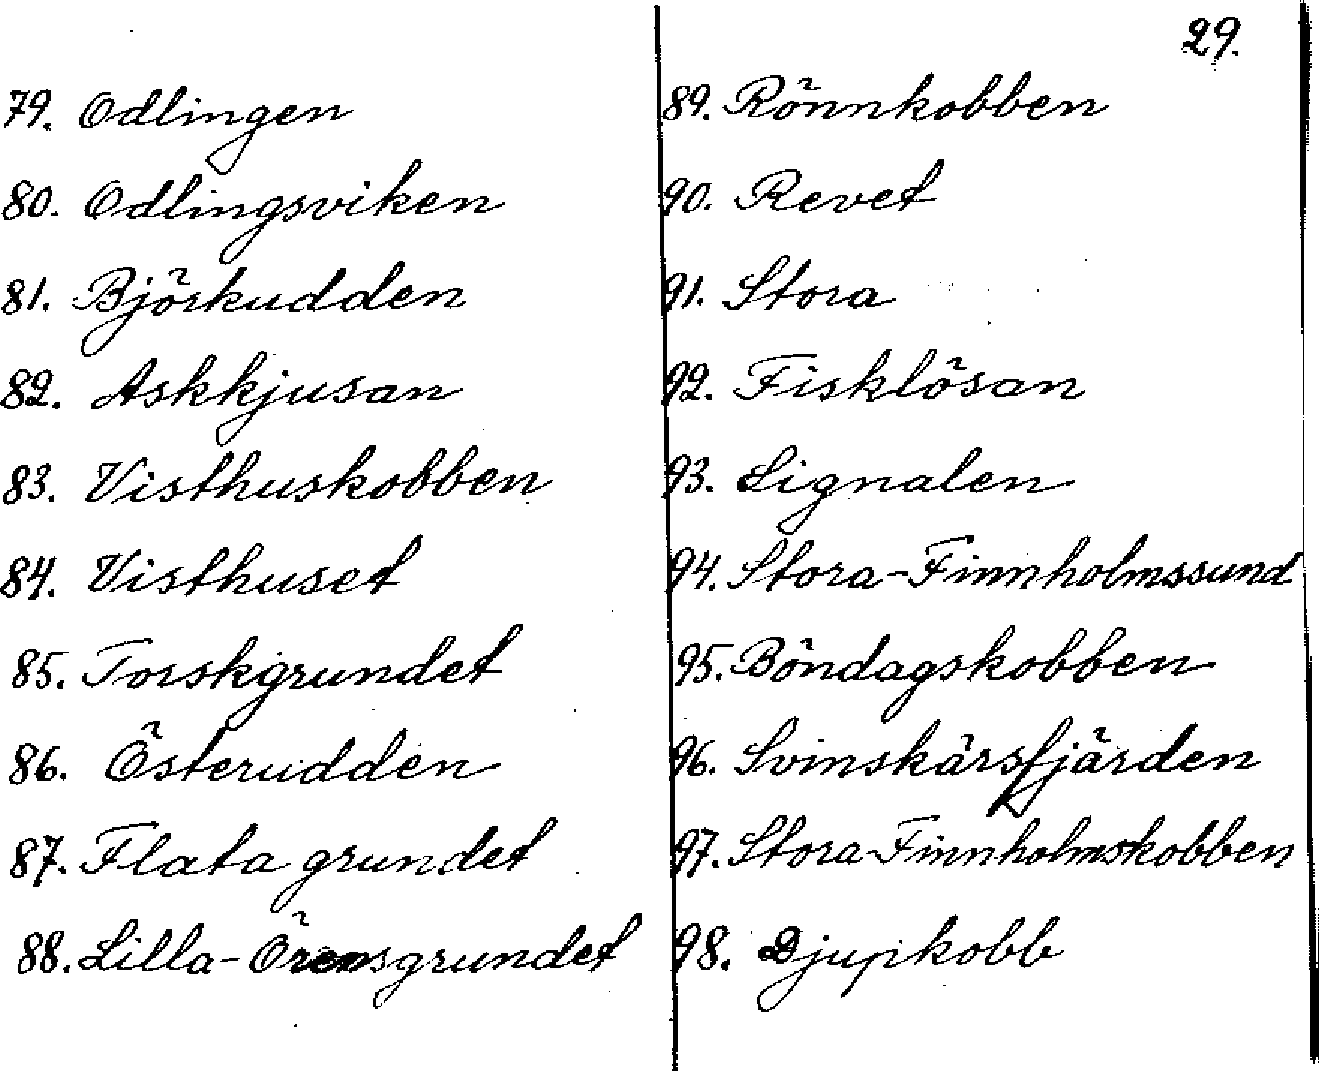 29.
79. Odlingen
80. Odlingsviken
81. Björkudden
82. Askkjusan
83. Visthuskobben
84. Visthuset
85. Torskgrundet
86. Österudden
87. Flata grundet
88. Lilla-Örensgrundet
89. Rönnkobben
90. Revet
91. Stora
92. Fisklösan
93. Signalen
94. Stora-Finnholmssund
95. Böndagskobben
96. Svinskärsfjärden
97. Stora-Finnholmskobben
98. Djupkobb